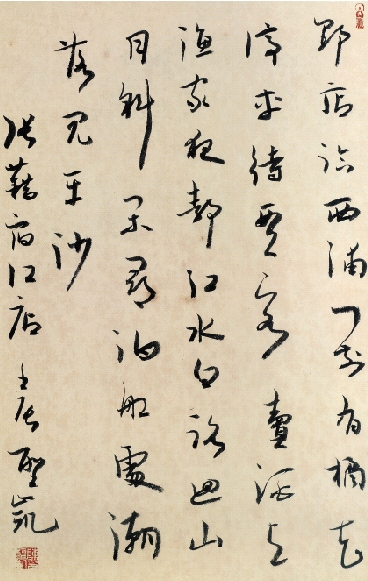 野店臨西浦門前有橘花
停燈待賈客賣酒與
漁家夜靜江水白路迴山
月斜閒尋泊船處潮
落見平沙
張籍宿江店 壬辰 聖凱